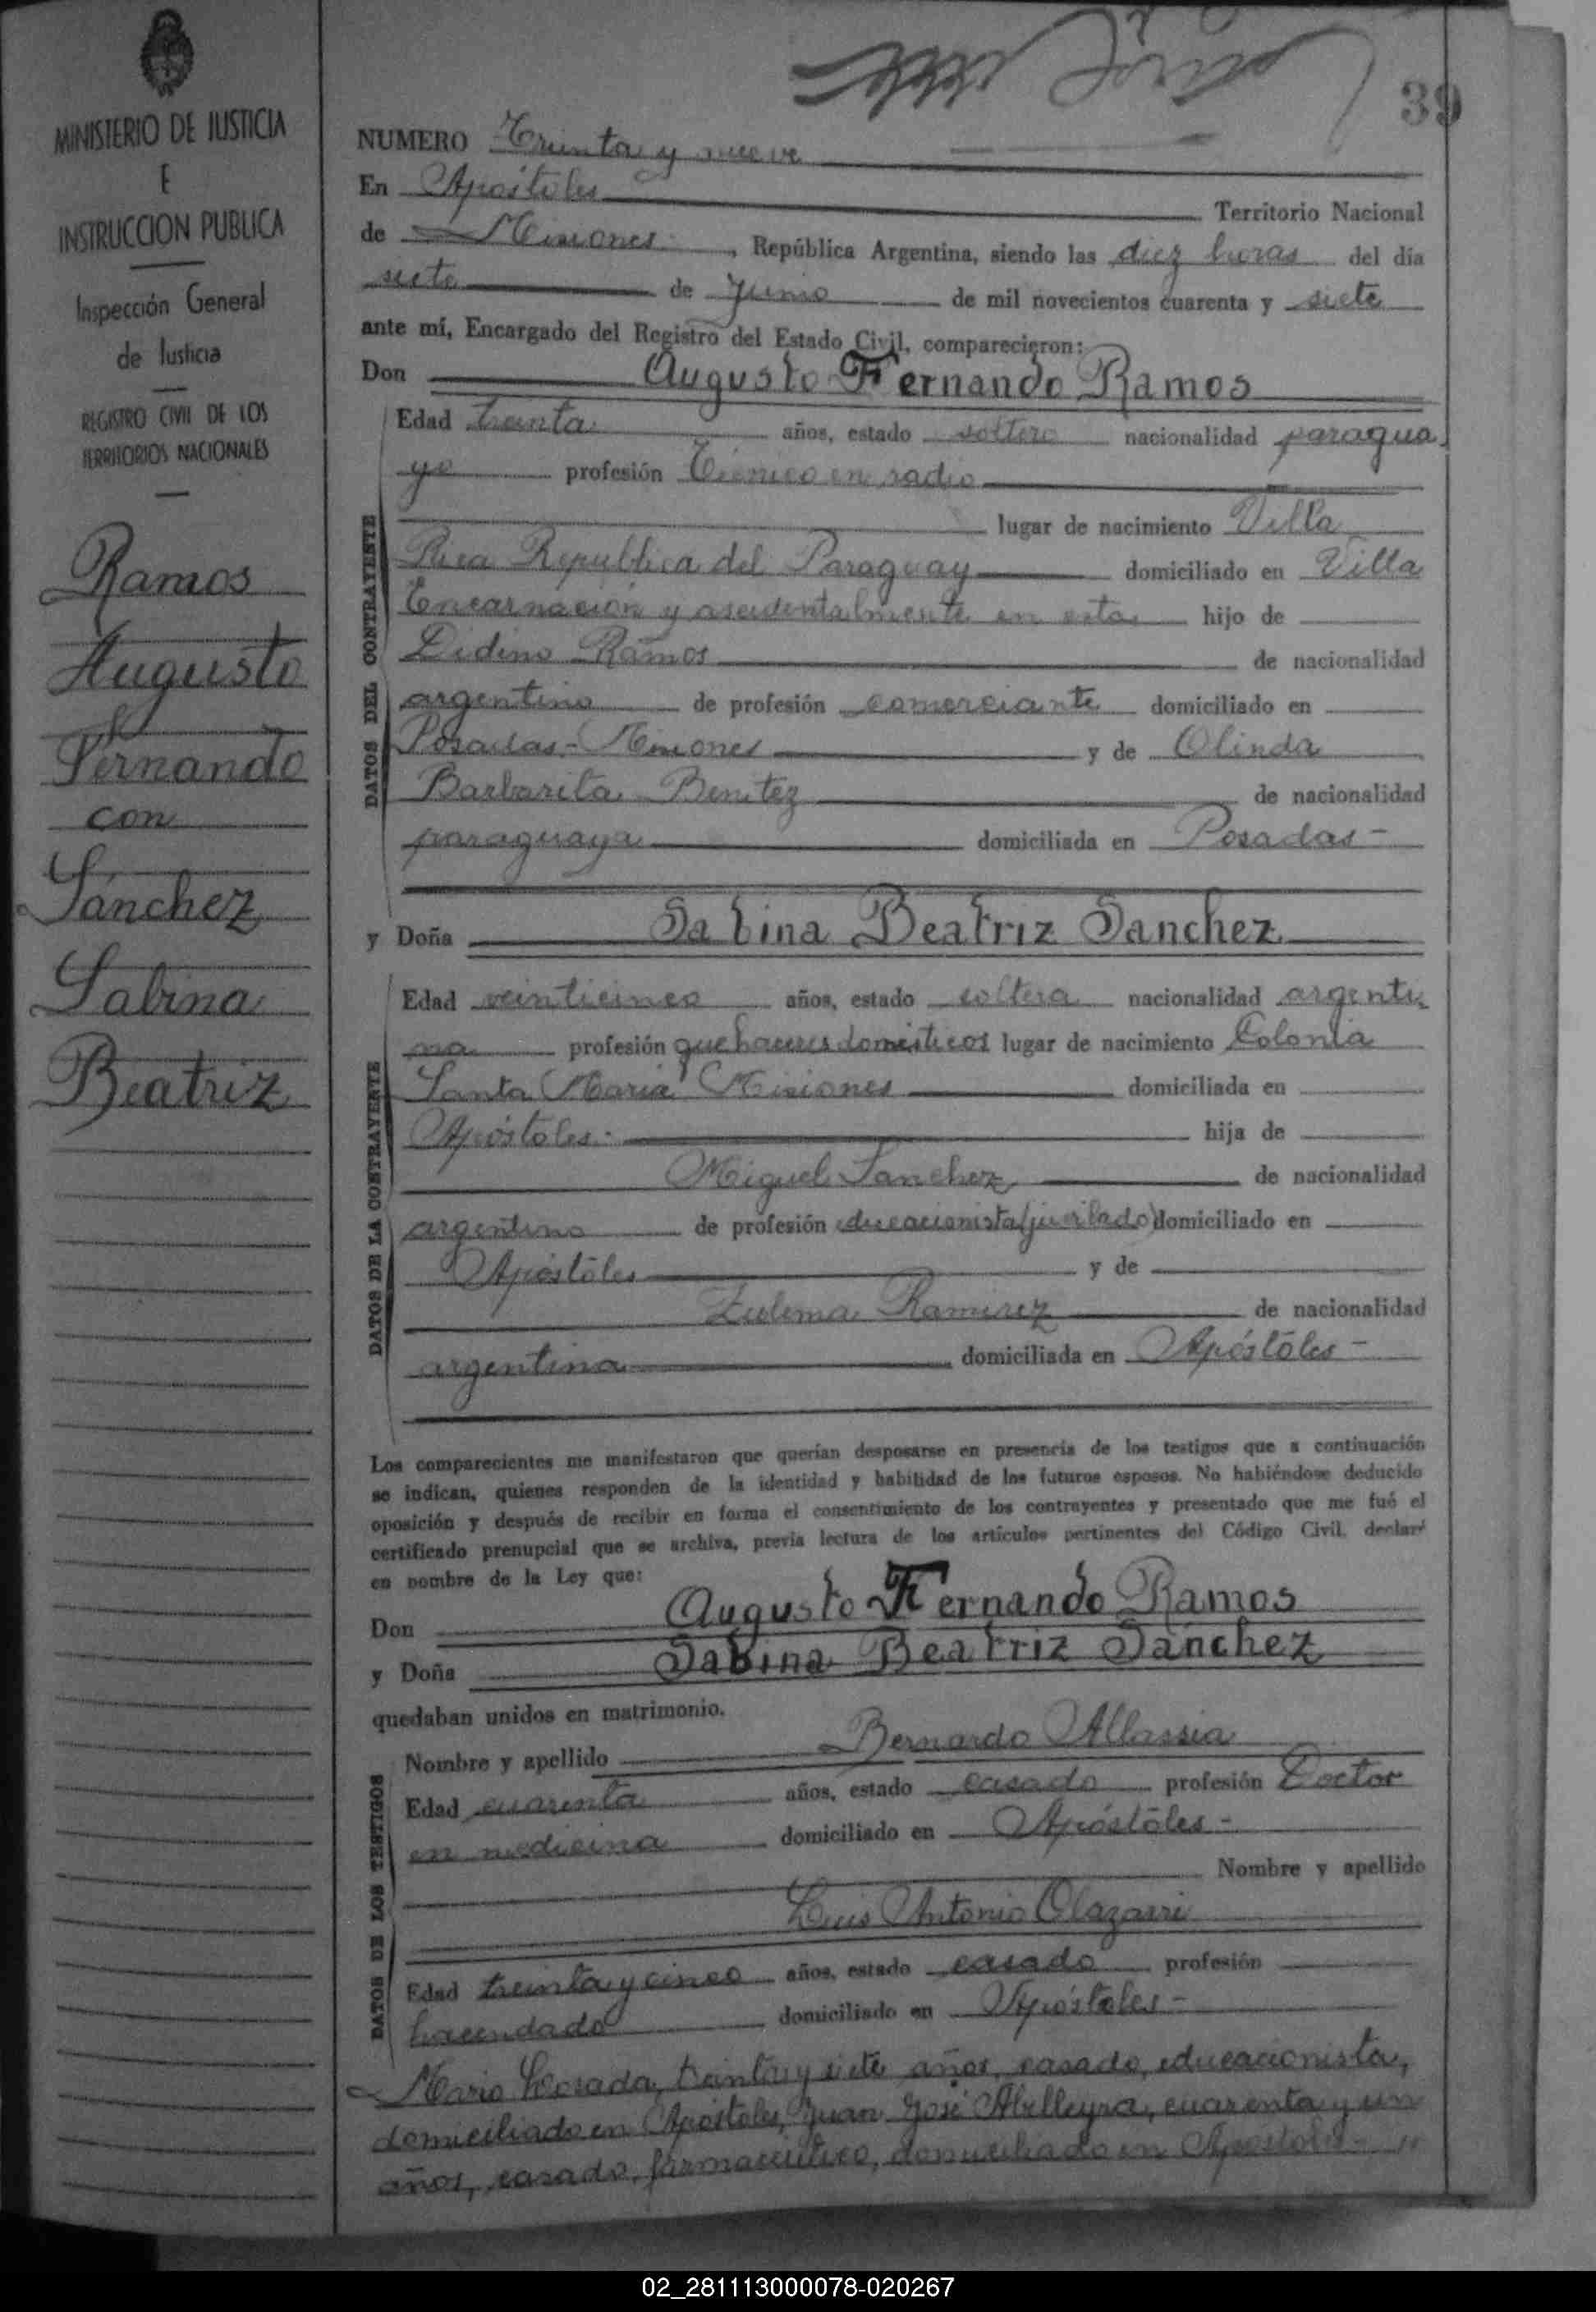 39
MINISTERIO DE JUSTICIA
E
INSTRUCCION PUBLICA
Inspección General
de Justicia
REGISTRO CIVIL DE LOS
TERRITORIOS NACIONALES
Ramos
Augusto
Fernando
con
Sánchez
Sabina
Beatriz
NUMERO Treinta y nueve
En Apóstoles Territorio Nacional
de Misiones, República Argentina, siendo las diez horas del día
siete de Junio de mil novecientos cuarenta y siete
ante mí, Encargado del Registro del Estado Civil, comparecieron:
Don Augusto Fernando Ramos
DATOS DEL CONTRAYENTE
Edad treinta años, estado soltero nacionalidad paragua
yo profesión Técnico en radio
lugar de nacimiento Villa
Rica Republica del Paraguay domiciliado en Villa
Encarnación y accidentalmente en esta hijo de
Didino Ramos de nacionalidad
argentino de profesión comerciante domiciliado en
Posadas - Misiones y de Olinda
Barbarita Benitez de nacionalidad
paraguaya domiciliada en Posadas -
y Doña Sabina Beatriz Sanchez
DATOS DE LA CONTRAYENTE
Edad veinticinco años, estado soltera nacionalidad argenti
na profesión quehaceres domésticos lugar de nacimiento Colonia
Santa María Misiones domiciliada en
Apóstoles - hija de
Miguel Sanchez de nacionalidad
argentino de profesión educacionista (jubilado) domiciliado en
Apóstoles y de
Zulema Ramirez de nacionalidad
argentina domiciliada en Apóstoles -
Los comparecientes me manifestaron que querían desposarse en presencia de los testigos que a continuación
se indican, quienes responden de la identidad y habilidad de los futuros esposos. No habiéndose deducido
oposición y después de recibir en forma el consentimiento de los contrayentes y presentado que me fué el
certificado prenupcial que se archiva, previa lectura de los artículos pertinentes del Código Civil, declaré
en nombre de la Ley que:
Don Augusto Fernando Ramos
y Doña Sabina Beatriz Sánchez
quedaban unidos en matrimonio.
DATOS DE LOS TESTIGOS
Nombre y apellido Bernardo Allassia
Edad cuarenta años, estado casado profesión Doctor
en medicina domiciliado en Apóstoles -
Nombre y apellido
Luis Antonio Olazarri
Edad treinta y cinco años, estado casado profesión
hacendado domiciliado en Apóstoles -
Mario Losada, treinta y siete años, casado, educacionista,
domiciliado en Apóstoles, Juan José Abelleyra, cuarenta y un
años, casado, farmacéutico, domiciliado en Apóstoles -
02_281113000078-020267